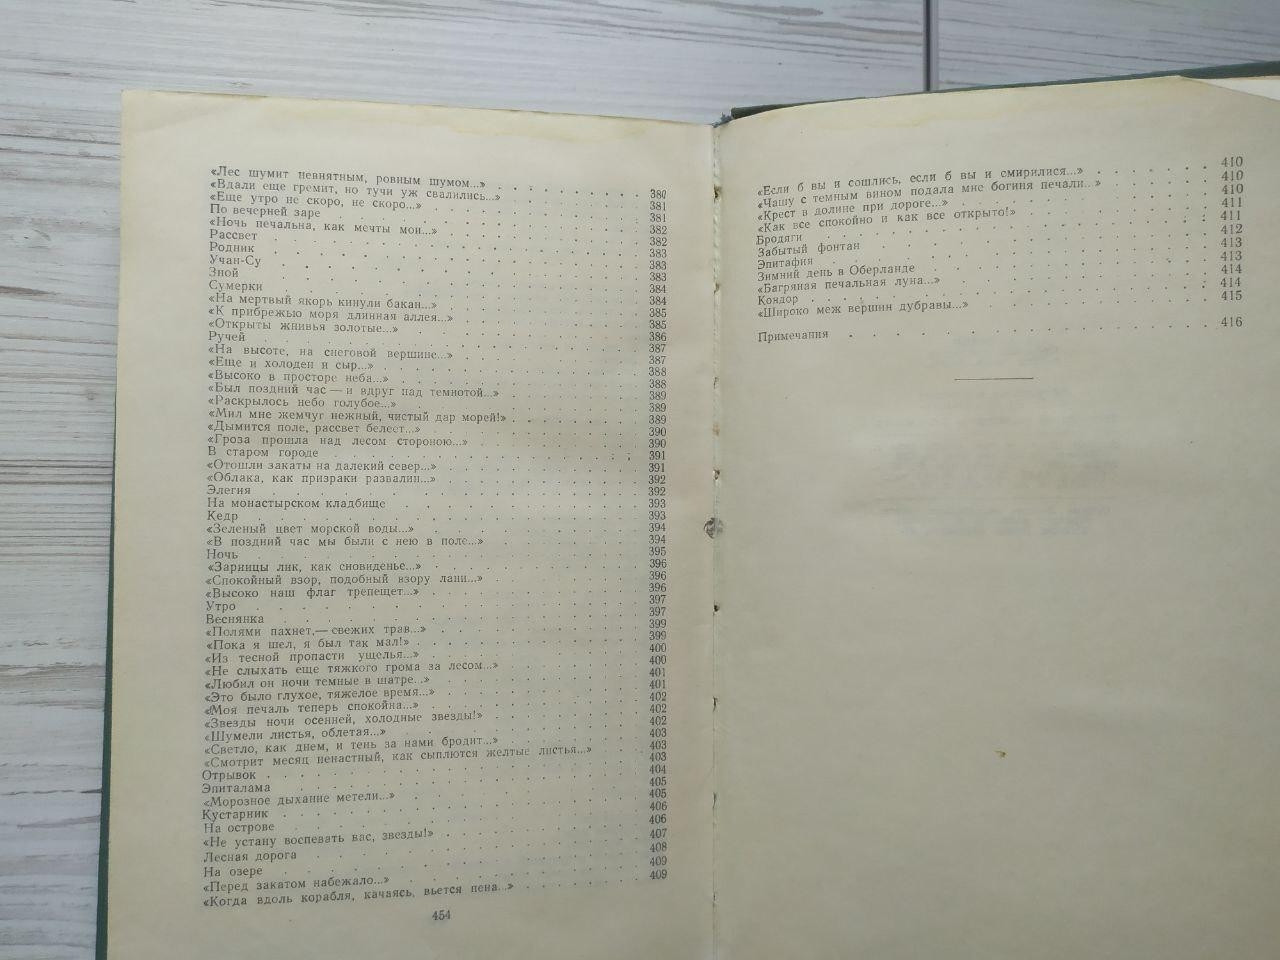 «Лес шумит невнятным, ровным шумом...» 380
«Вдали еще гремит, но тучи уж свалились...» 381
«Еще утро не скоро, не скоро...» 381
По вечерней заре 382
«Ночь печальна, как мечты мои...» 382
Рассвет 383
Родник 383
Учан-Су 383
Зной 384
Сумерки 384
«На мертвый якорь кинули бакан...» 385
«К прибрежью моря длинная аллея...» 385
«Открыты жнивья золотые...» 386
Ручей 387
«На высоте, на снеговой вершине...» 387
«Еще и холоден и сыр...» 388
«Высоко в просторе неба...» 388
«Был поздний час — и вдруг над темнотой...» 389
«Раскрылось небо голубое...» 389
«Мил мне жемчуг нежный, чистый дар морей!» 389
«Дымится поле, рассвет белеет...» 390
«Гроза прошла над лесом стороною...» 390
В старом городе 391
«Отошли закаты на далекий север...» 391
«Облака, как призраки развалин...» 392
Элегия 392
На монастырском кладбище 393
Кедр 393
«Зеленый цвет морской воды...» 394
«В поздний час мы были с нею в поле...» 394
Ночь 395
«Зарницы лик, как сновиденье...» 396
«Спокойный взор, подобный взору лани...» 396
«Высоко наш флаг трепещет...» 396
Утро 397
Веснянка 397
«Полями пахнет,— свежих трав...» 399
«Пока я шел, я был так мал!» 399
«Из тесной пропасти ущелья...» 400
«Не слыхать еще тяжкого грома за лесом...» 400
«Любил он ночи темные в шатре...» 401
«Это было глухое, тяжелое время...» 401
«Моя печаль теперь спокойна...» 402
«Звезды ночи осенней, холодные звезды!» 402
«Шумели листья, облетая...» 402
«Светло, как днем, и тень за нами бродит...» 403
«Смотрит месяц ненастный, как сыплются желтые листья...» 403
Отрывок 403
Эпиталама 404
«Морозное дыхание метели...» 405
Кустарник 405
На острове 406
«Не устану воспевать вас, звезды!» 406
Лесная дорога 407
На озере 408
«Перед закатом набежало...» 409
«Когда вдоль корабля, качаясь, вьется пена...» 409
454
«Если б вы и сошлись, если б вы и смирилися...» 410
«Чашу с темным вином подала мне богиня печали...» 410
«Крест в долине при дороге...» 410
«Как все спокойно и как все открыто!» 411
Бродяги 411
Забытый фонтан 412
Эпитафия 413
Зимний день в Оберланде 413
«Багряная печальная луна...» 414
Кондор 414
«Широко меж вершин дубравы...» 415
Примечания 416